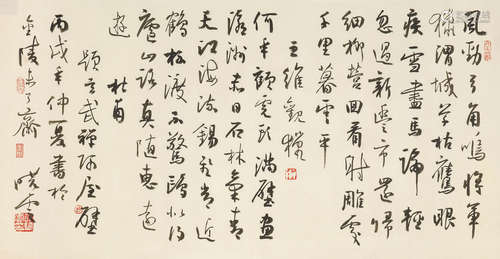 風勁弓角鳴將軍
獵渭城草枯鷹眼
疾雪盡馬蹄輕
忽過新豐市還歸
細柳營回看射雕處
千里暮雲平
王維觀獵
何年顧虎頭滿壁畫
瀛洲赤日石林氣青
天江海流錫飛常近
鶴杯渡不驚鷗似得
廬山路真隨惠遠
遊 杜甫
題玄武禪師屋壁
丙戌年仲夏書於
金陵 齋 曉雲